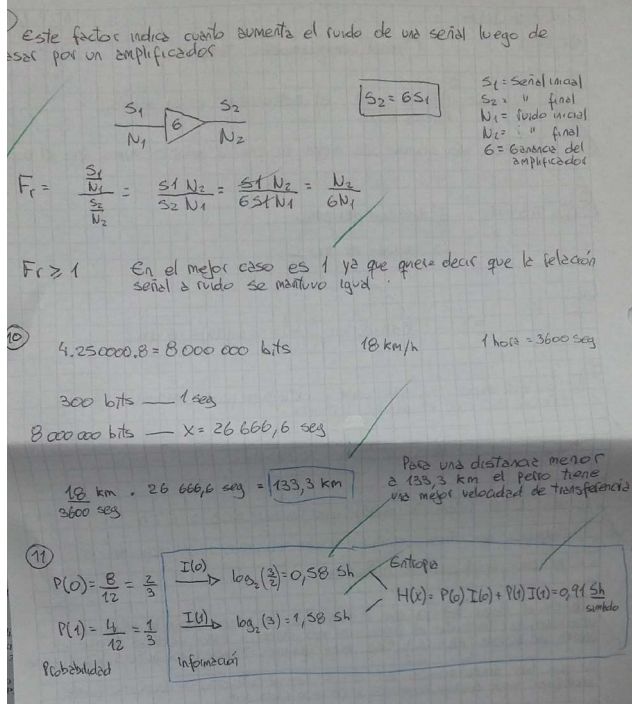 Este factor indica cuánto aumenta el ruido de una señal luego de
asar por un amplificador
S1 S2
N1 G N2
S2 = GS1
S1 = Señal inicial
S2 = " final
N1 = ruido inicial
N2 = " final
G = Ganancia del
amplificador
Fr = (S1/N1)/(S2/N2) = S1 N2/S2 N1 = S1 N2/G S1 N1 = N2/G N1
Fr ≥ 1 En el mejor caso es 1 ya que quiere decir que la relación
señal a ruido se mantuvo igual.
10
4.250000.8 = 8000 000 bits 18 km/h 1 hora = 3600 seg
300 bits — 1 seg
8 000 000 bits — X = 26 666,6 seg
18 km/3600 seg . 26 666,6 seg = 133,3 km
Para una distancia menor
a 133,3 km el perro tiene
una mejor velocidad de transferencia
11
P(0) = 8/12 = 2/3 I(0) → log2(3/2) = 0,58 Sh
P(1) = 4/12 = 1/3 I(1) → log2(3) = 1,58 Sh
Entropía
H(x) = P(0) I(0) + P(1) I(1) = 0,91 Sh/símbolo
Probabilidad Información